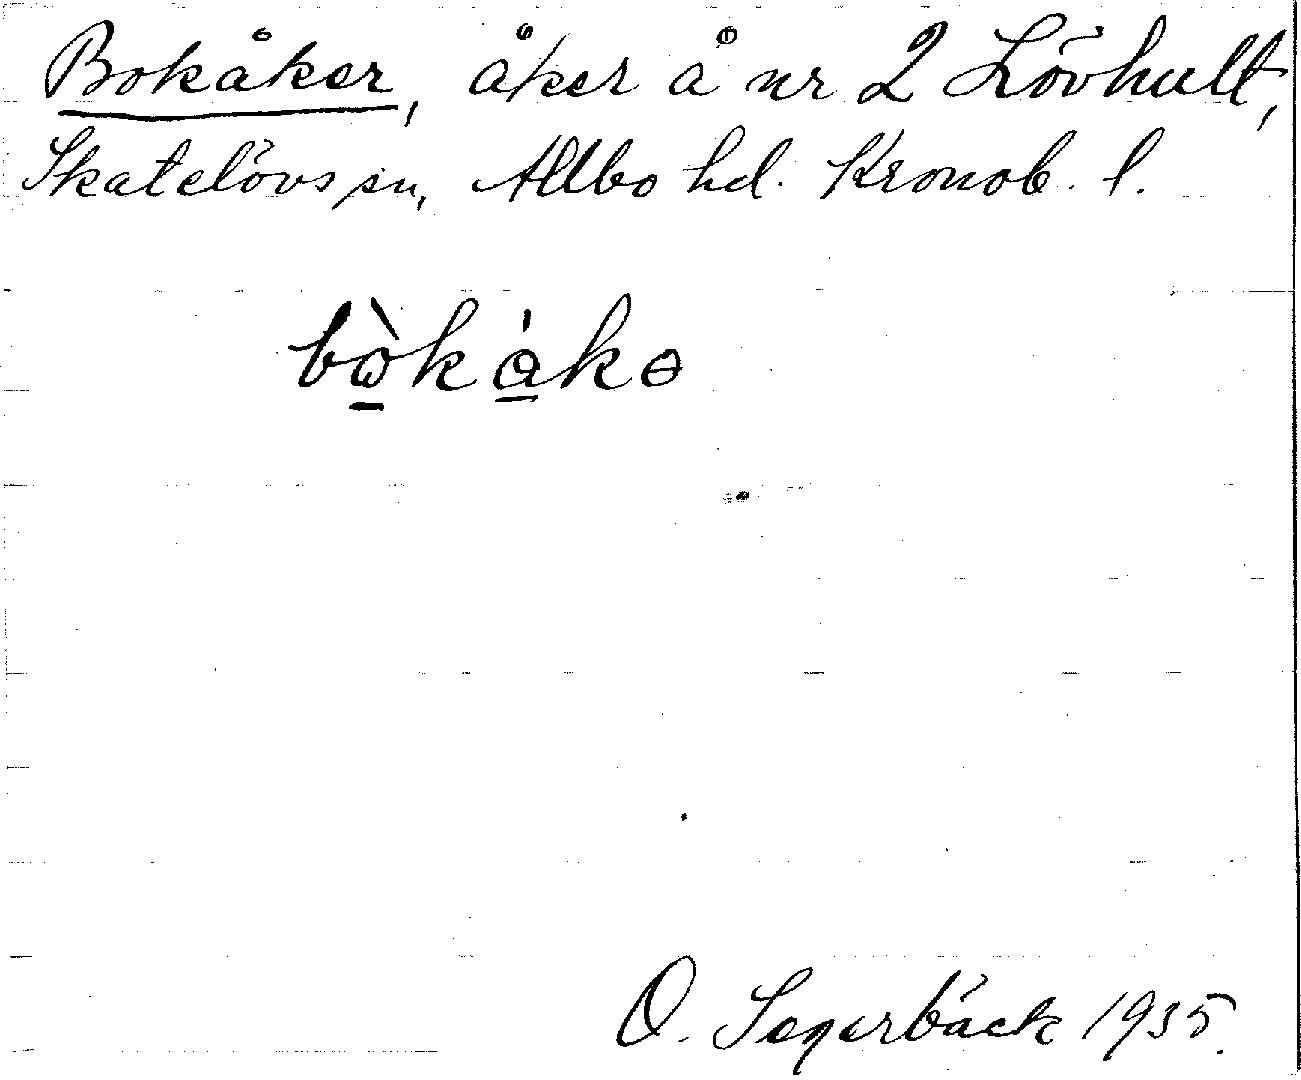 Bokåker, åker å nr 2 Lövhult,
Skatelövs sn, Allbo hd. Kronob. l.
bὼ̲kå̲̀kɵ
O. Segerbäck 1935.